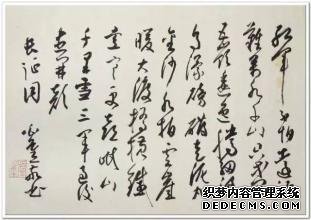 红军不怕远征
难万水千山只等
闲五岭逶迤腾细浪
乌蒙磅礴走泥丸
金沙水拍云崖
暖大渡桥横铁
索寒更喜岷山
千里雪三军过后
尽开颜
长征词
织梦内容管理系统
DEDECMS.COM